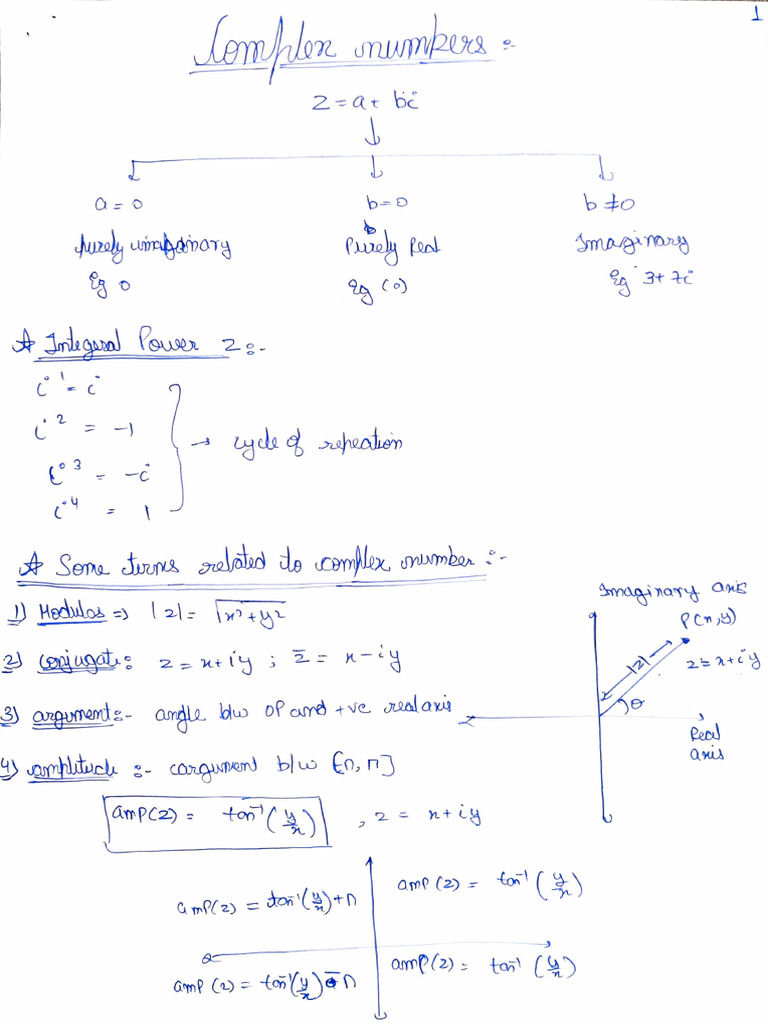 1
Complex numbers :-
z = a + bi
a = 0 b = 0 b ≠ 0
Purely imaginary Purely Real Imaginary
Eg 0 Eg (0) Eg 3 + 7i
* Integral Power z :-
i¹ = i
i² = -1
i³ = -i
i⁴ = 1
→ cycle of repeation
* Some terms related to complex number :-
1) Modulos => |z| = √x²+y²
2) conjugate : z = x+iy ; z̄ = x-iy
3) argument :- angle b/w OP and +ve real axis
4) amplitude :- (argument b/w [π, π]
amp(z) = tan⁻¹(y/x) , z = x+iy
Imaginary axis
P(x,y)
|z|
z = x+iy
θ
Real
axis
amp(z) = tan⁻¹(y/x)+π amp(z) = tan⁻¹(y/x)
amp(z) = tan⁻¹(y/x) - π amp(z) = tan⁻¹(y/x)